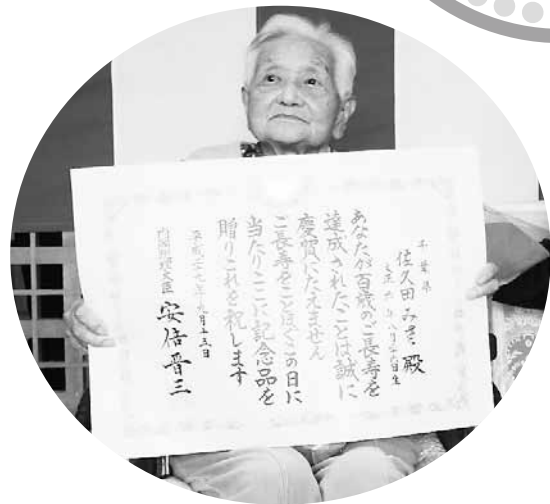 千葉県
佐久田みさ殿
大正六年八月十六日生
あなたが百歳のご長寿を
達成されたことは誠に
慶賀にたえません
ご長寿をことほぐこの日に
当たりここに記念品を
贈りこれを祝します
月十五日
内閣総理大臣 安倍晋三